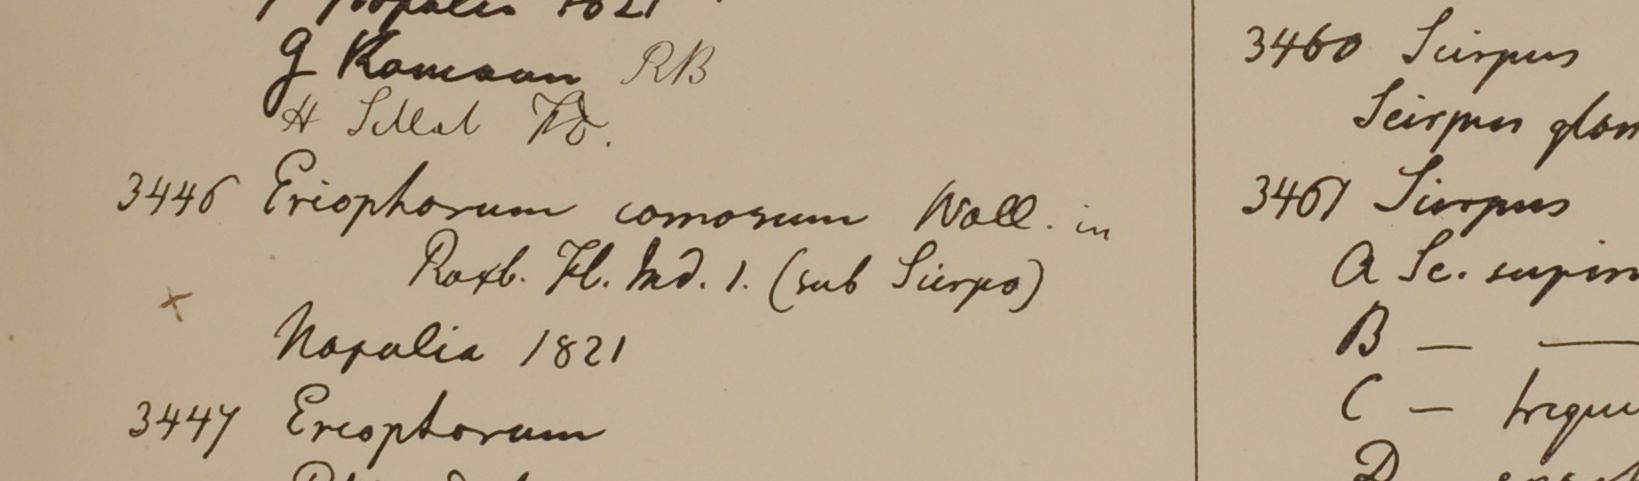 Napalia 1821
G Kamaon RB
H Sillet
3446 Eriophorum comosum Wall. in
Roxb. Fl. Ind. 1. (sub Scirpo)
x
Napalia 1821
3447 Eriophorum
3460 Scirpus
Scirpus glom
3461 Scirpus
A Sc. supin
B — —
C —
D